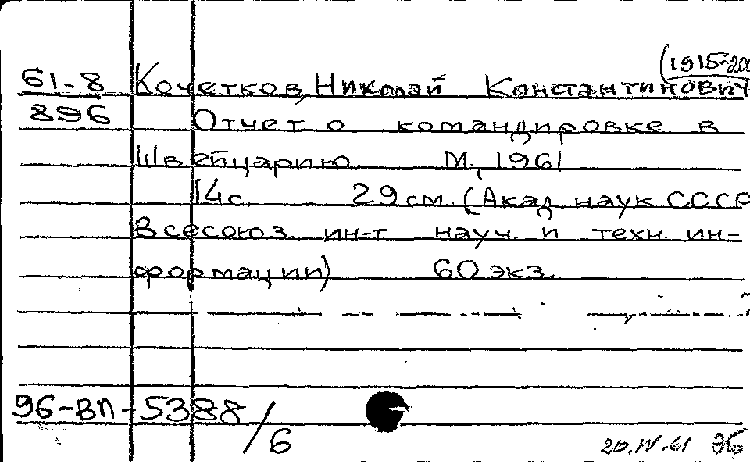 (1915-200
61-8 Кочетков, Николай Константинович
896 Отчет о командировке в
Швейцарию М., 1961
14с. 29см. (Акад. наук СССР
Всесоюз. ин-т науч. и техн. ин-
формации) 60 экз.
96-ВП-5388/6
20.IV.61